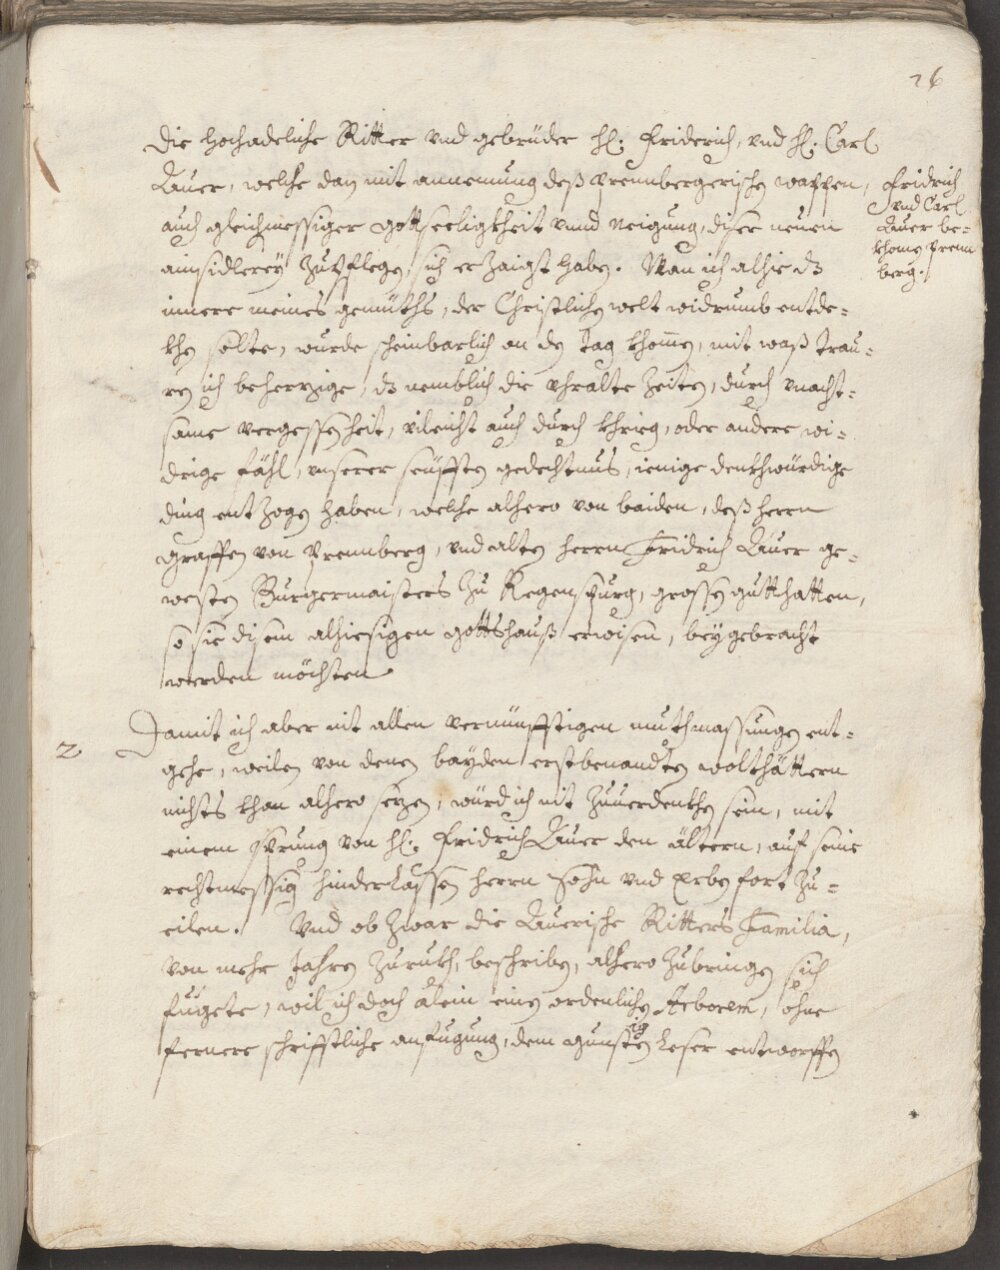 26
Die hochadeliche Ritter vnd gebrüder H: Friderich, vnd H: Carl
Auer, welche dan mit annemung deß Prennbergerischen wappen,
auch gleichmessiger gottseeligkheit vnnd neigung, diser neuen
ainsidlerey zu pflegen, sich erzaigt haben. Wan ich alhie dz
innere meines gemüths, der Christlichen welt widrumb entde=
khen solte, wurde scheinbarlich an den tag khomen, mit waß trau=
ren ich beherzige, dz nemblich die vhralte Zeiten, durch vnacht=
same vergessenheit, vileicht auch durch khrieg, oder andere wi=
drige fähl, vnserer seüfften gedechtnus, ienige denkhwürdige
ding entzogen haben, welche alhero von baiden, deß herrn
graffen von Prennberg, vnd alten herrn Fridrich Auer ge=
westen Burgermaisters zu Regenspurg, grossen gutthatten,
so sie disem alhiesigen gottshauß erwisen, beygebracht
werden möchten
Fridrich
vnd Carl
Auer be=
khomen Prenn
berg.
2
Damit ich aber nit allen vernünfftigen muthmassungen ent=
gehe, weilen von denen bayden erstbenandten wolthättern
nichts khan alhero sezen, würd ich nit zuuerdenkhen sein, mit
einem sprung von H: Fridrich Auer den ältern, auf seine
rechtmessig hinderlassen herrn Sohn vnd Erben fort zu=
eilen. Vnd ob zwar die Auerische Ritters Familia,
von mehr Jahren zurukh, beschriben, alhero zubringen sich
fügete, wil ich doch alein einen ordenlichen Arborem, ohne
fernere schrifftliche anfugung, dem gunstigen Leser entworffen